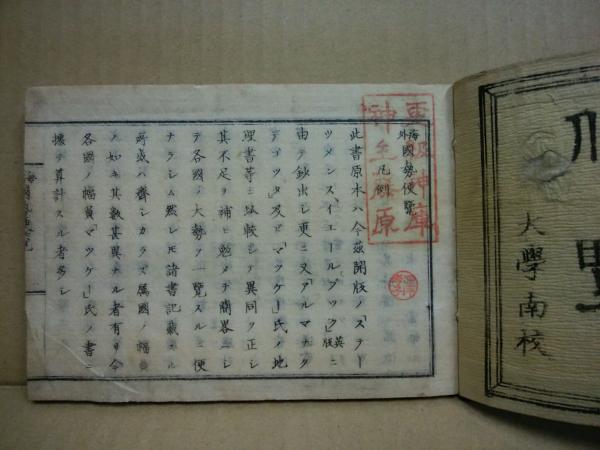 海外國勢便覽
凡例
此書原本ハ今茲開版ノ「ステー
ツメンス、イエールブック」英版ニ
由テ鈔出シ更ニ又「アルマナク
デゴツタ」及ビ「マツケー」氏ノ地
理書等ニ較シ異同ヲ正シ
其不足ヲ補ヒ勉メテ簡畧ニシ
テ各國ノ大勢ヲ一覽スルニ便
ナラシム然レ𪜈諸書記載スル
所或ハ齊シカラズ属國ノ幅員
ノ如キ其數異ナル者有リ今
各國ノ幅員「マツケー」氏ノ書ニ
據テ算計スル者多シ
大學南校